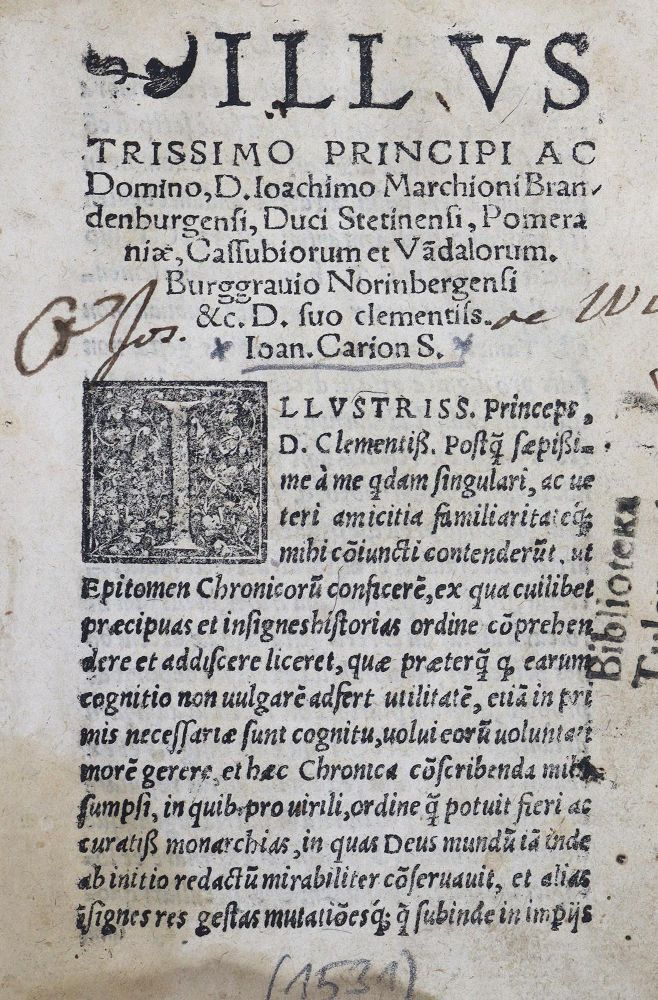 ILLVS
TRISSIMO PRINCIPI AC
Domino, D. Ioachimo Marchioni Bran-
denburgensi, Duci Stetinensi, Pomera
niæ, Cassubiorum et Vādalorum.
Burggrauio Norinbergensi
&c. D. suo clementiss.
Ioan. Carion S.
ILLVSTRISS. Princeps,
D. Clementiß. Postq̃ sæpißi-
me à me qdam singulari, ac ue
teri amicitia familiaritateq́;
mihi cōiuncti contenderūt, ut
Epitomen Chronicorū conficerē, ex qua cuilibet
præcipuas et insignes historias ordine cōprehen
dere et addiscere liceret, quæ præterq̃ q earum
cognitio non uulgarē adfert utilitatē, etiā in pri
mis necessariæ sunt cognitu, uolui eorū uoluntati
morē gerere, et hæc Chronica cōscribenda mihi
sumpsi, in quib. pro uirili, ordine q̃ potuit fieri ac
curatiß monarchias, in quas Deus mundū iā inde
ab initio redactū mirabiliter cōseruauit, et alias
īsignes res gestas mutatiōesq́; q̃ subinde in impijs
Ex Jos.
de
Biblioteka
(1531)